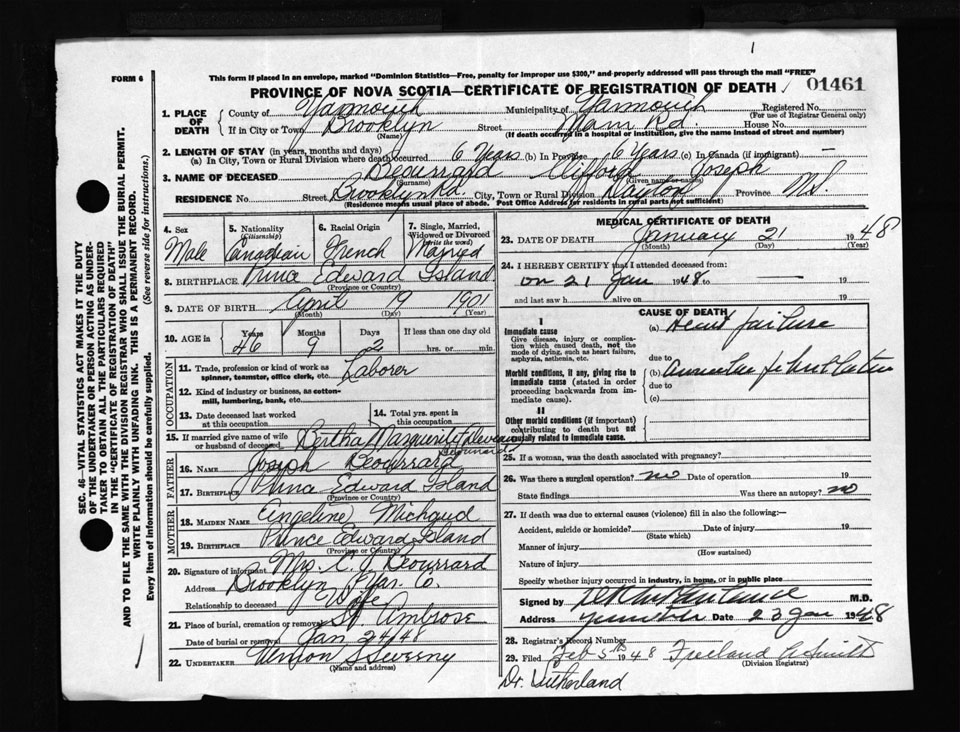 1
FORM 6
This form if placed in an envelope, marked "Dominion Statistics—Free, penalty for improper use $300," and properly addressed will pass through the mail "FREE"
PROVINCE OF NOVA SCOTIA—CERTIFICATE OF REGISTRATION OF DEATH 01461
SEC. 46—VITAL STATISTICS ACT MAKES IT THE DUTY
OF THE UNDERTAKER OR PERSON ACTING AS UNDER-
TAKER TO OBTAIN ALL THE PARTICULARS REQUIRED
IN THE "CERTIFICATE OF REGISTRATION OF DEATH"
AND TO FILE THE SAME WITH THE DIVISION REGISTRAR WHO SHALL ISSUE THE BURIAL PERMIT.
WRITE PLAINLY WITH UNFADING INK. THIS IS A PERMANENT RECORD.
Every item of information should be carefully supplied. (See reverse side for instructions.)
1. PLACE OF DEATH
County of Yarmouth Municipality of Yarmouth Registered No.
(For use of Registrar General only)
If in City or Town Brooklyn Street Main Rd. House No.
(Name) (If death occurred in a hospital or institution, give the name instead of street and number)
2. LENGTH OF STAY (in years, months and days)
(a) In City, Town or Rural Division where death occurred 6 Years (b) In Province 6 Years (c) In Canada (if immigrant) —
3. NAME OF DECEASED Deourrard Clifford Joseph
(Surname) (Given name or names)
RESIDENCE No. Street Brooklyn Rd. City, Town or Rural Division Dayton Province N.S.
(Residence means usual place of abode. Post Office Address for residents in rural parts not sufficient)
4. Sex
Male
5. Nationality
(Citizenship)
Canadian
6. Racial Origin
French
7. Single, Married, Widowed or Divorced
(write the word)
Married
8. BIRTHPLACE Prince Edward Island
(Province or Country)
9. DATE OF BIRTH April 19 1901
(Month) (Day) (Year)
10. AGE in Years Months Days If less than one day old
46 9 2 hrs. or min.
OCCUPATION
11. Trade, profession or kind of work as
spinner, teamster, office clerk, etc. Laborer
12. Kind of industry or business, as cotton-
mill, lumbering, bank, etc.
13. Date deceased last worked
at this occupation
14. Total yrs. spent in
this occupation
15. If married give name of wife
or husband of deceased Bertha Marguerite
FATHER
16. NAME Joseph Deourrard
17. BIRTHPLACE Prince Edward Island
(Province or Country)
MOTHER
18. MAIDEN NAME Angeline Michaud
19. BIRTHPLACE Prince Edward Island
(Province or Country)
20. Signature of informant Mrs. C. J. Deourrard
Address Brooklyn Yar. Co.
Relationship to deceased Wife
21. Place of burial, cremation or removal St. Ambrose
Date of burial or removal Jan 24/48
22. UNDERTAKER Vernon S Sweeny
(Name and address)
MEDICAL CERTIFICATE OF DEATH
23. DATE OF DEATH January 21 1948
(Month) (Day) (Year)
24. I HEREBY CERTIFY that I attended deceased from:
on 21 Jan 1948 to — 19
and last saw h alive on 19
CAUSE OF DEATH
I
Immediate cause
Give disease, injury or complica-
tion which caused death, not the
mode of dying, such as heart failure,
asphyxia, asthenia, etc.
(a) Heart failure
due to
Morbid conditions, if any, giving rise to
immediate cause (stated in order
proceeding backwards from im-
mediate cause).
(b) Auricular fibrillation
due to
(c)
II
Other morbid conditions (if important)
contributing to death but not
causally related to immediate cause.
25. If a woman, was the death associated with pregnancy?
26. Was there a surgical operation? no Date of operation 19
State findings Was there an autopsy? no
27. If death was due to external causes (violence) fill in also the following:—
Accident, suicide or homicide? Date of injury 19
(State which)
Manner of injury
(How sustained)
Nature of injury
Specify whether injury occurred in industry, in home, or in public place
Signed by M.D.
Address Yarmouth Date 23 Jan 1948
28. Registrar's Record Number
29. Filed Feb 5th 1948 Freeland A Smith
(Division Registrar)
Dr. Sutherland